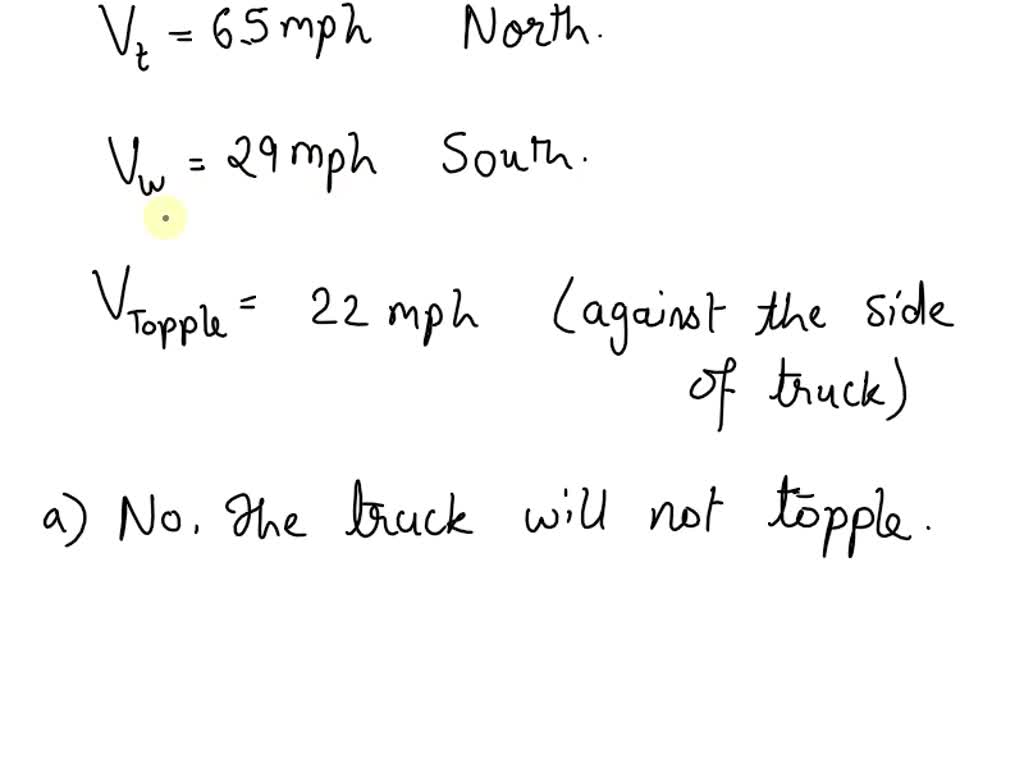 Vt = 65 mph North.
Vw = 29 mph South.
VTopple = 22 mph (against the side
of truck)
a) No. The truck will not topple.